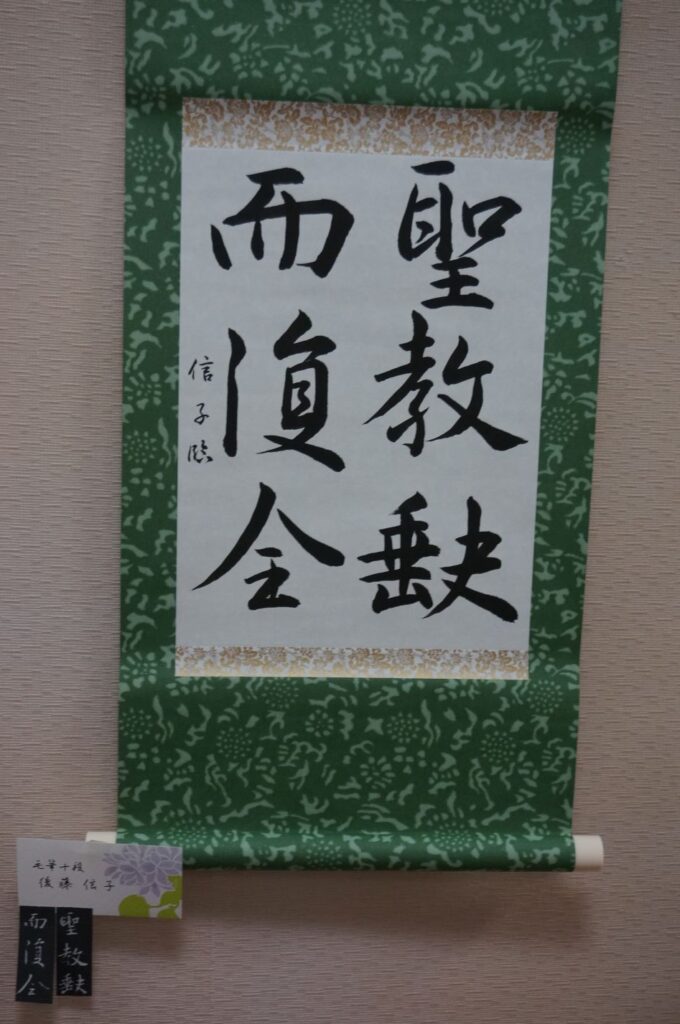 聖教缺
而復全
信子臨
毛筆十段
後藤信子
聖教缺
而復全